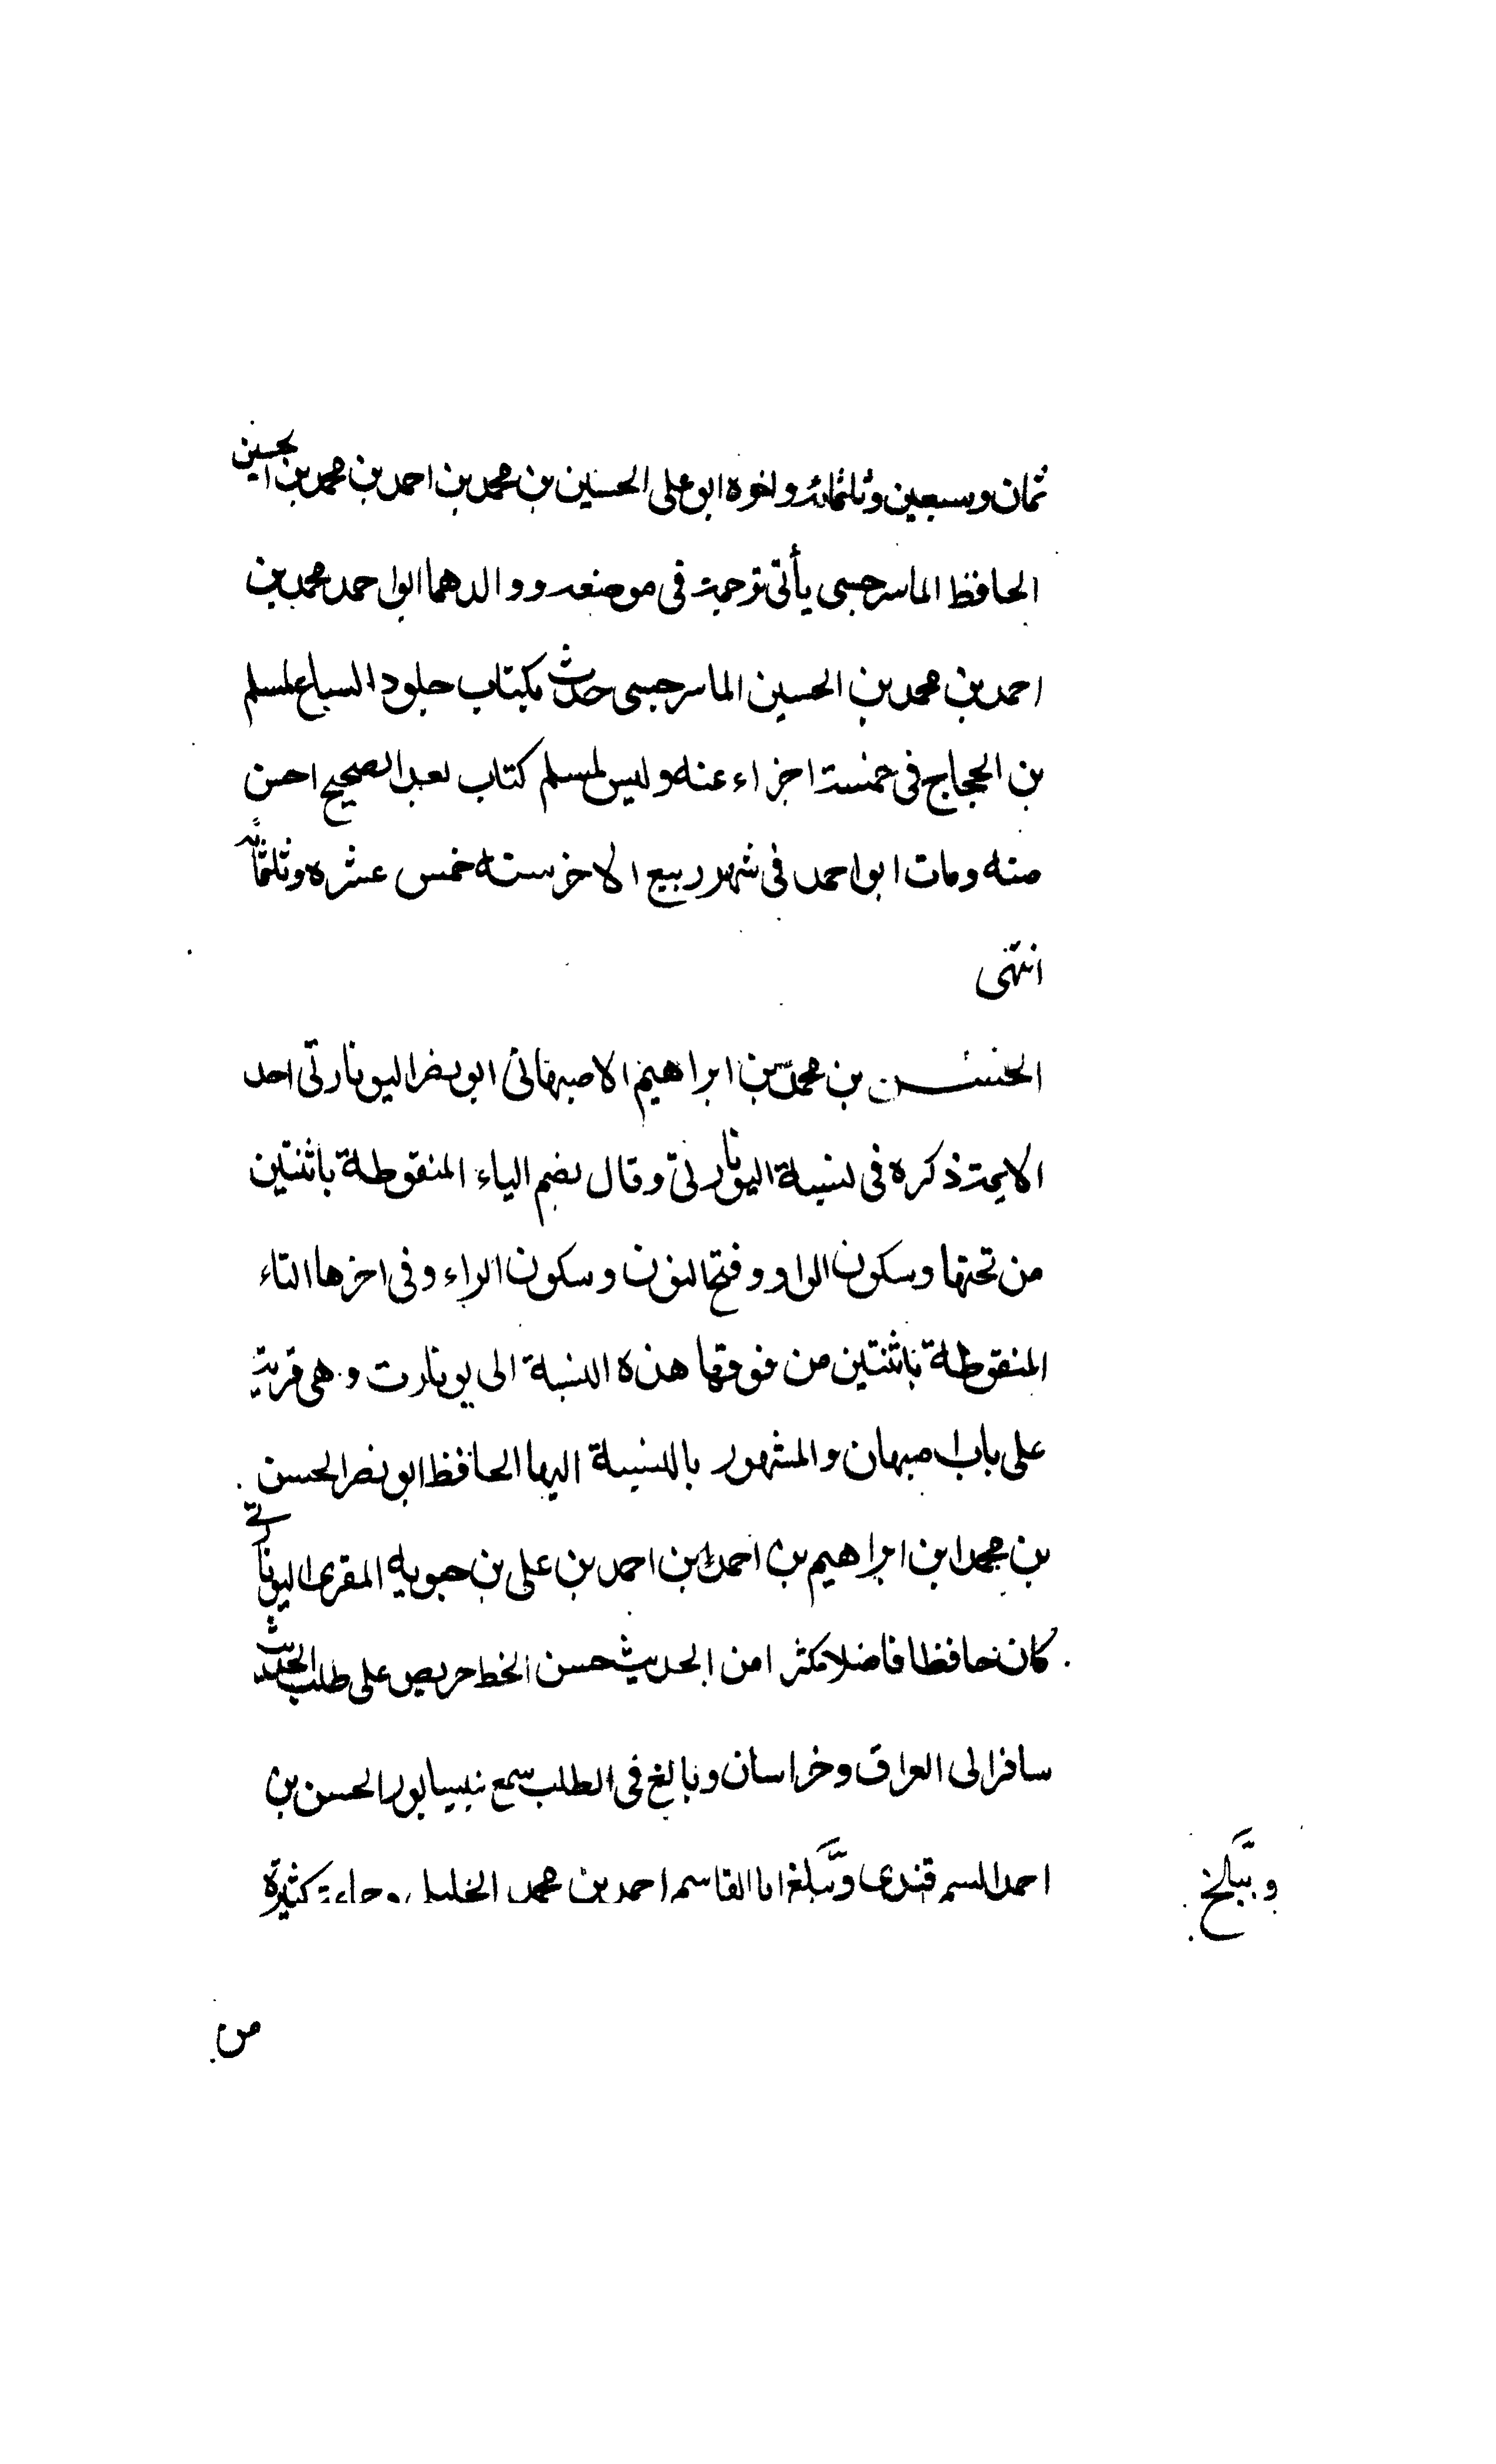 ثمان وسبعين وثلثمائه واخوه ابو على الحسين بن محمد بن احمد بن محمد بن الحسين
الحافظ الماسرجسى يأتى ترجمة فى موضعه ووالدهما ابو احمد محمد بن
احمد بن محمد بن الحسين الماسرجسى حدث بكتاب جلود السباع لمسلم
بن الحجاج فى خمسة اجزاء عنه وليس لمسلم كتاب بعد الصحيح احسن
منه ومات ابو احمد فى شهر ربيع الاخر سنه خمس عشره وثلثمائه
انتهى
الحسن بن محمد بن ابراهيم الاصبهانى ابو نصر اليونارتى احد
الايمة ذكره فى نسبة اليونارتى وقال بضم الياء المنقوطة باثنتين
من تحتها وسكون الواو وفتح النون وسكون الراء وفى اخرها التاء
المنقوطة باثنتين من فوقها هذه النسبة الى يونارت وهى قرية
على باب اصبهان والمشهور بالنسبة اليها الحافظ ابو نصر الحسن
بن محمد ابن ابراهيم بن احمد ابن احمد بن على بن حيويه المقرى اليونارتى
كان حافظا فاضلا مكثرا من الحديث حسن الخط حريص على طلب الحديث
سافر الى العراق وخراسان وبالغ فى الطلب سمع نبيسابور الحسن بن
احمد السمرقندى وببلغ ابا القاسم احمد بن محمد الخليلى وجماعة كثيرة
وببلخ
من